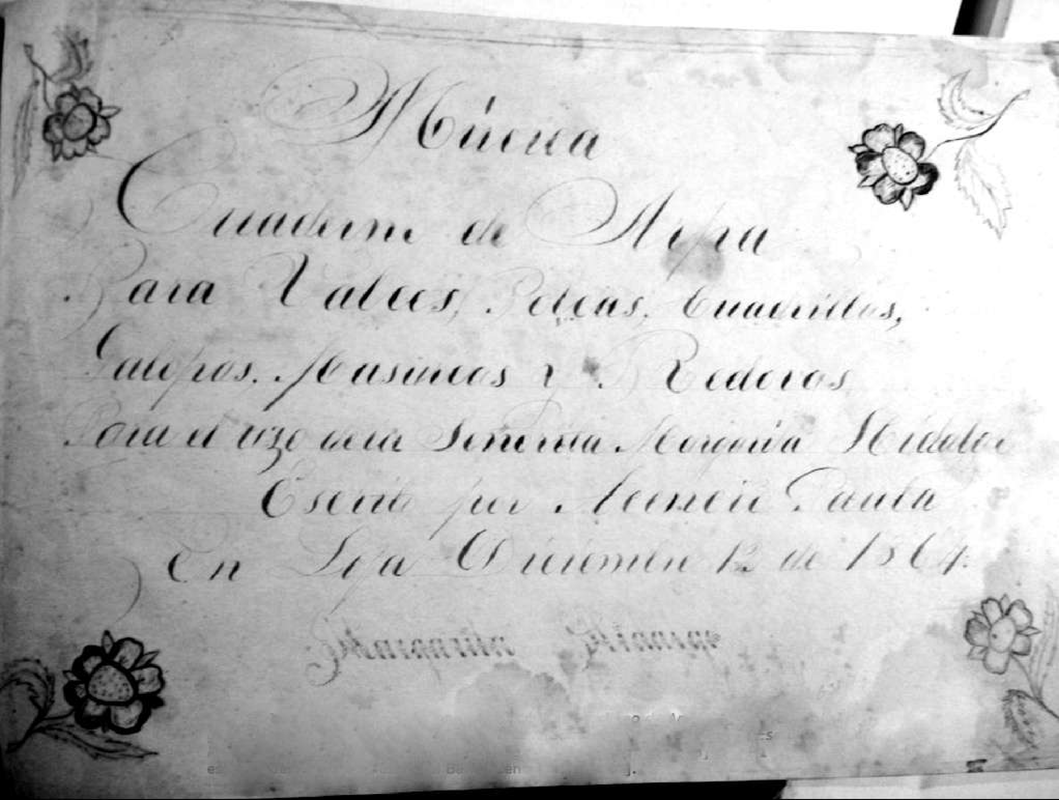 Música
Cuaderno de Arpa
Para Valces, Polcas, Cuadrillas,
Galopas. Masurcas y Redovas
Para el uzo de la Señorita Margarita Hidalgo
Escrito por Paula
En Loja Diciembre 12 de 1864.
Margarita Hidalgo